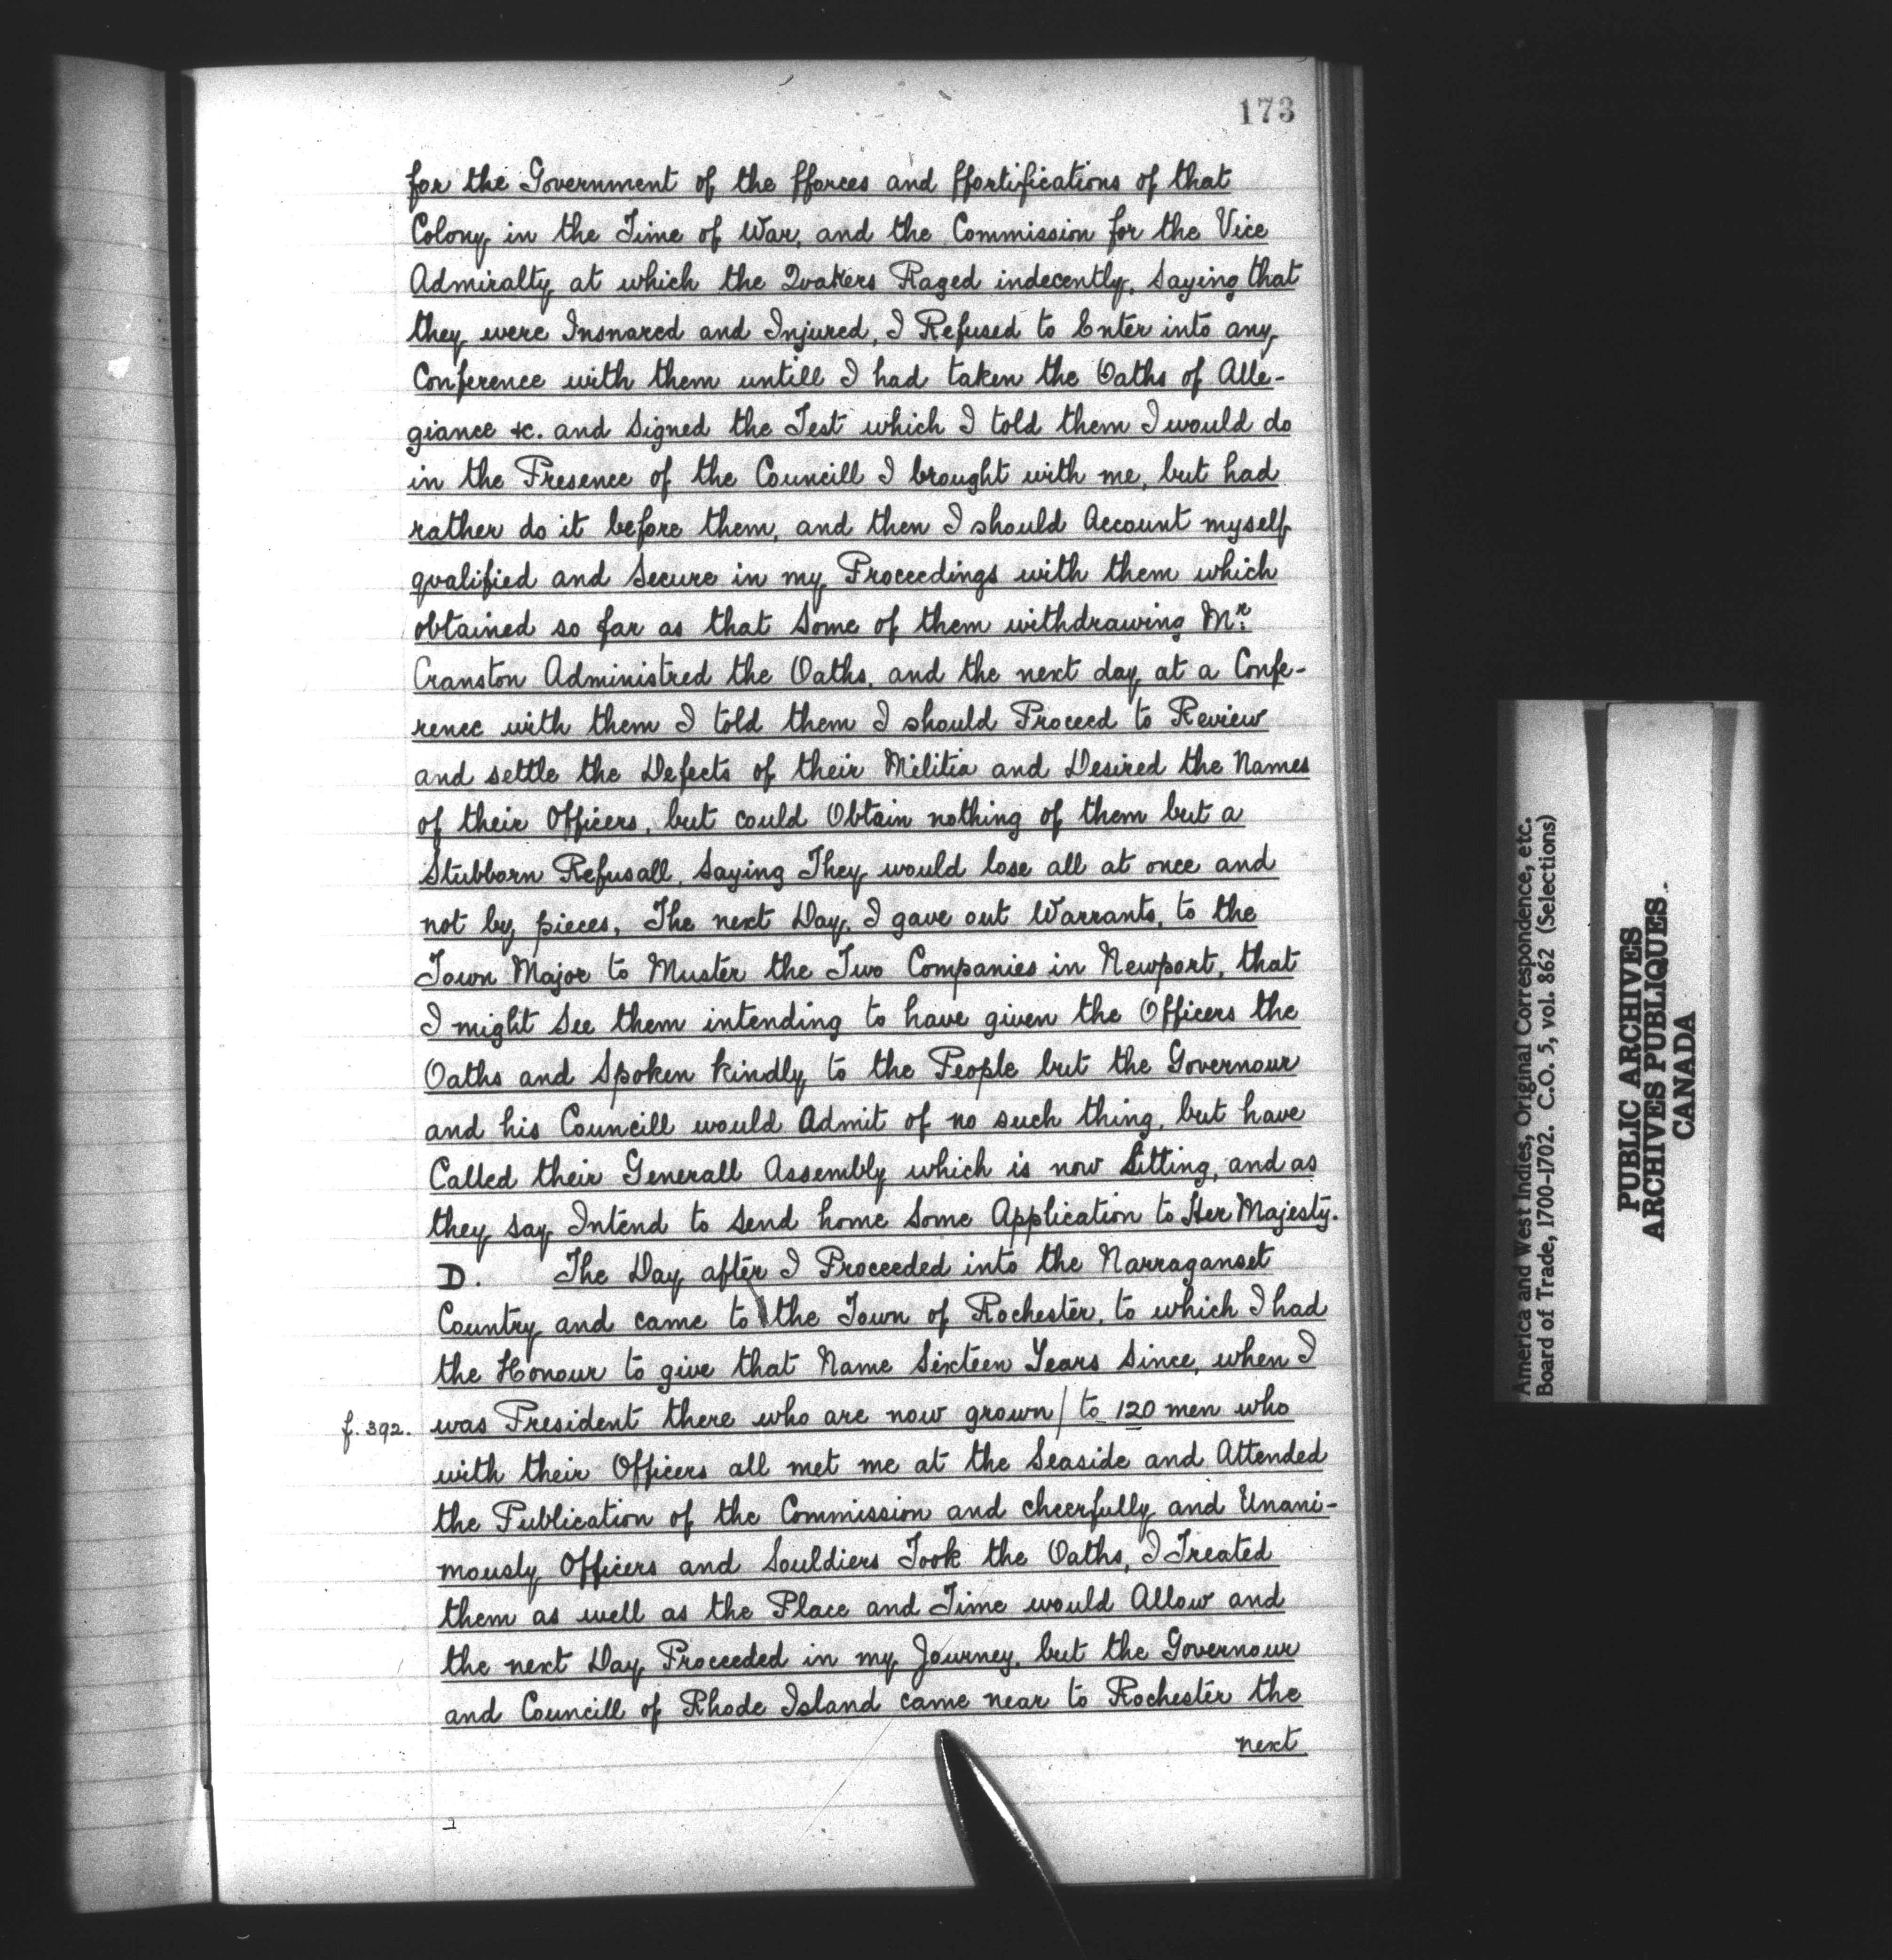 173
for the Government of the fforces and ffortifications of that
Colony, in the Time of War, and the Commission for the Vice
Admiralty, at which the Quakers Raged indecently, Saying that
they were Insnared and Injured, I Refused to Enter into any
Conference with them untill I had taken the Oaths of Alle-
giance &c. and Signed the Test which I told them I would do
in the Presence of the Councill I brought with me, but had
rather do it before them, and then I should Account myself
qualified and Secure in my Proceedings with them which
obtained so far as that Some of them withdrawing Mr.
Cranston Administred the Oaths, and the next day at a Confe-
rence with them I told them I should Proceed to Review
and settle the Defects of their Militia and Desired the Names
of their Officers, but could Obtain nothing of them but a
Stubborn Refusall, Saying They would lose all at once and
not by pieces, The next Day, I gave out Warrants, to the
Town Major to Muster the Two Companies in Newport, that
I might See them intending to have given the Officers the
Oaths and Spoken kindly to the People but the Governour
and his Councill would Admit of no such thing, but have
Called their Generall Assembly which is now Sitting, and as
they say Intend to Send home Some Application to Her Majesty.
D. The Day after I Proceeded into the Narraganset
Country and came to the Town of Rochester, to which I had
the Honour to give that Name Sixteen Years Since, when I
f. 392. was President there who are now grown / to 120 men who
with their Officers all met me at the Seaside and Attended
the Publication of the Commission and cheerfully and Unani-
mously Officers and Souldiers Took the Oaths, I Treated
them as well as the Place and Time would Allow and
the next Day Proceeded in my Journey, but the Governour
and Councill of Rhode Island came near to Rochester the
next
America and West Indies, Original Correspondence, etc.
Board of Trade, 1700-1702. C.O. 5, vol. 862 (Selections)
PUBLIC ARCHIVES
ARCHIVES PUBLIQUES
CANADA